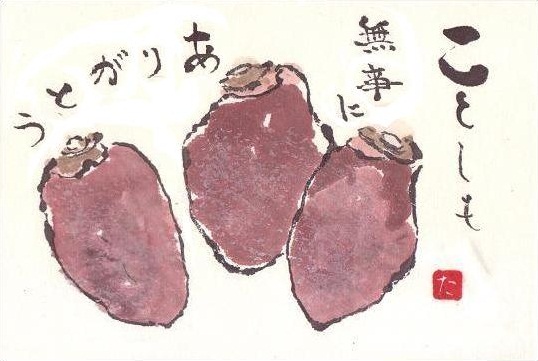 ことしも
無事に
ありがとう
た